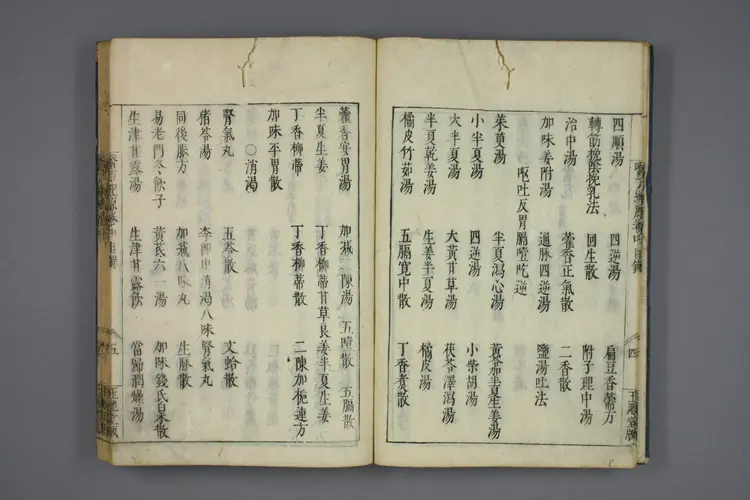 四順湯 四逆湯 扁豆香薷方
轉筋 法 回生散 附子理中湯
治中湯 藿香正氣散 二香散
加味姜附湯 通脉四逆湯 鹽湯吐法
嘔吐反胃膈噎吃逆
茱萸湯 半夏瀉心湯 黃芩加半夏生姜湯
小半夏湯 四逆湯 小柴胡湯
大半夏湯 大黃甘草湯 茯苓澤瀉湯
半夏乾姜湯 生姜半夏湯 橘皮湯
橘皮竹茹湯 五膈寬中散 丁香煑散
四
藿香安胃湯 加減二陳湯 五噎散 五膈散
半夏生姜 丁香柳蒂甘草良姜半夏生姜
丁香柳蒂 丁香柳蒂散 二陳加梔連方
加味平胃散
○消渴
腎氣丸 五苓散 文蛤散
猪苓湯 李 中消渴八味腎氣丸
同後脉方 加减八味丸 生脉散
易老門冬飲子 黃芪六一湯 加味錢氏白朮散
生津甘露湯 生津甘露飲 當歸潤燥湯
五